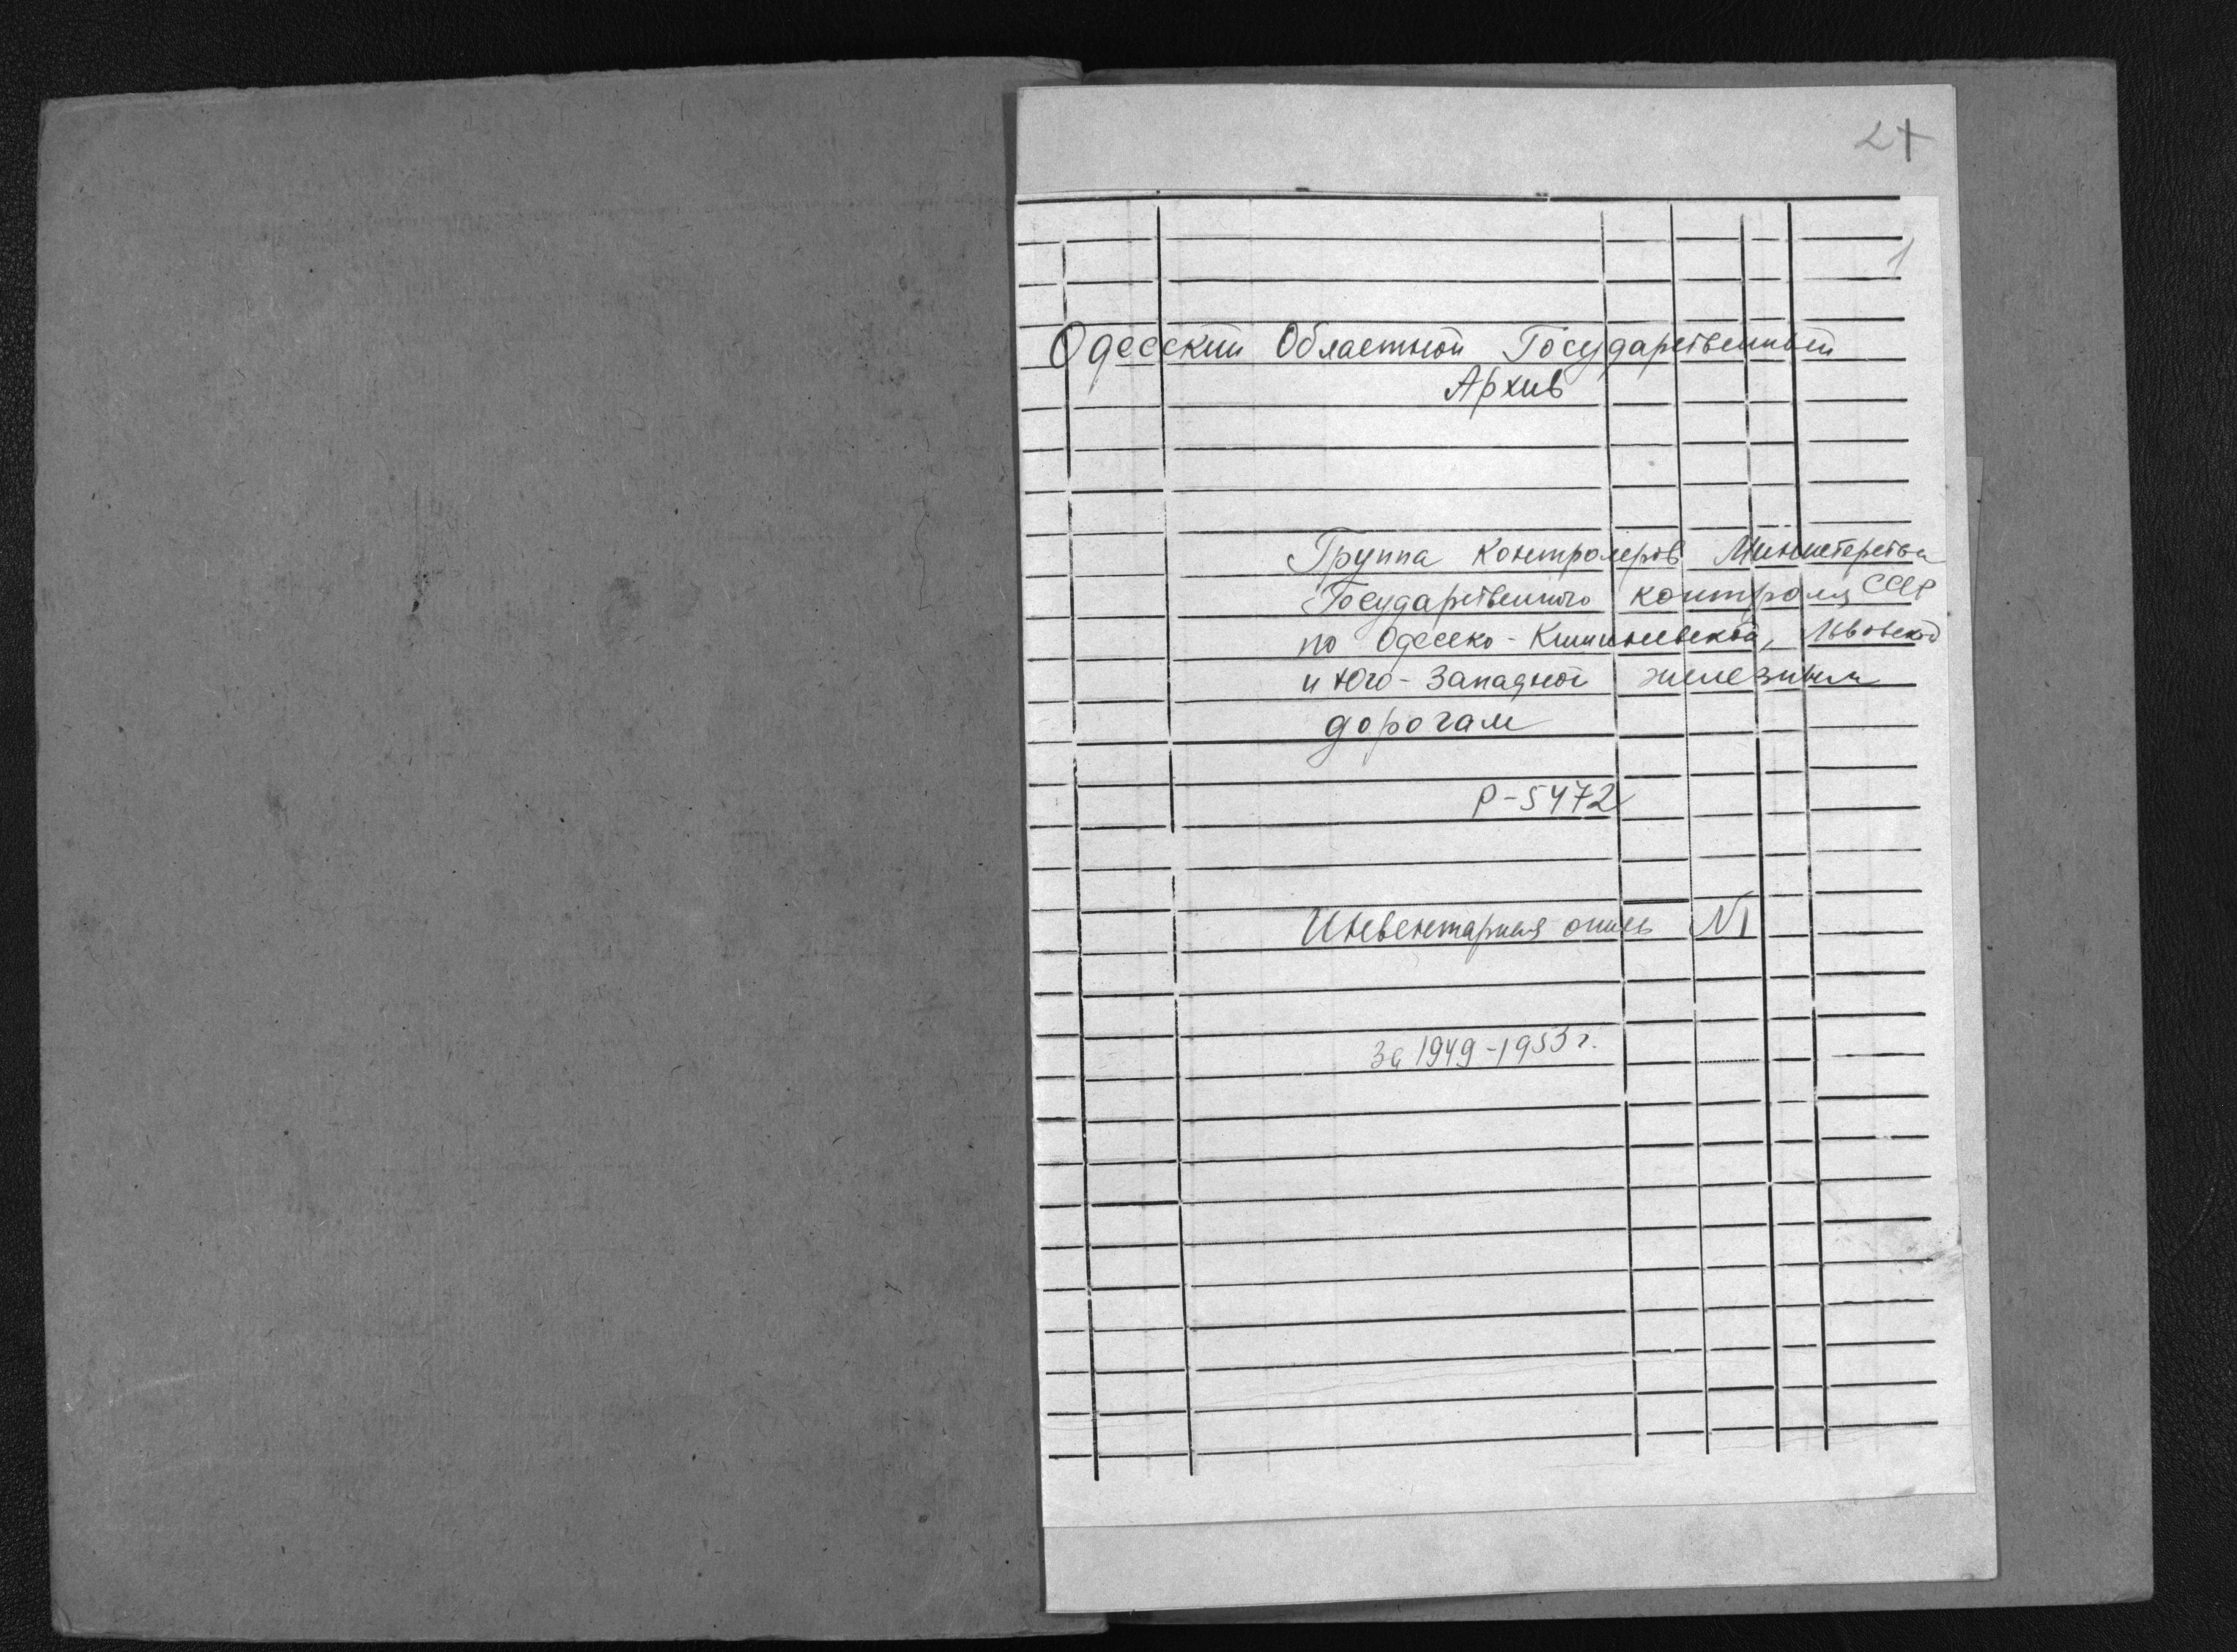 1
Одесский Областной Государственный
Архив
Группа контролеров Министерства
Государственного контроля СССР
по Одесско-Кишиневской, Львовской
и Юго-Западной железным
дорогам
Р-5472
Инвентарная опись №1
за 1949-1953 г.